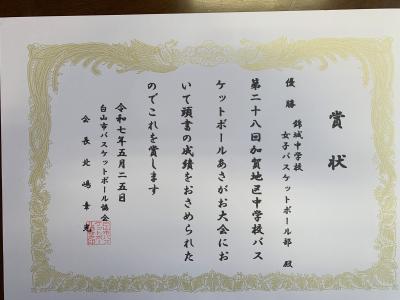 賞状
優勝
錦城中学校
女子バスケットボール部 殿
第二十八回加賀地区中学校バス
ケットボールあさがお大会にお
いて頭書の成績をおさめられた
のでこれを賞します
令和七年五月二五日
白山市バスケットボール協会
会長 北嶋章光